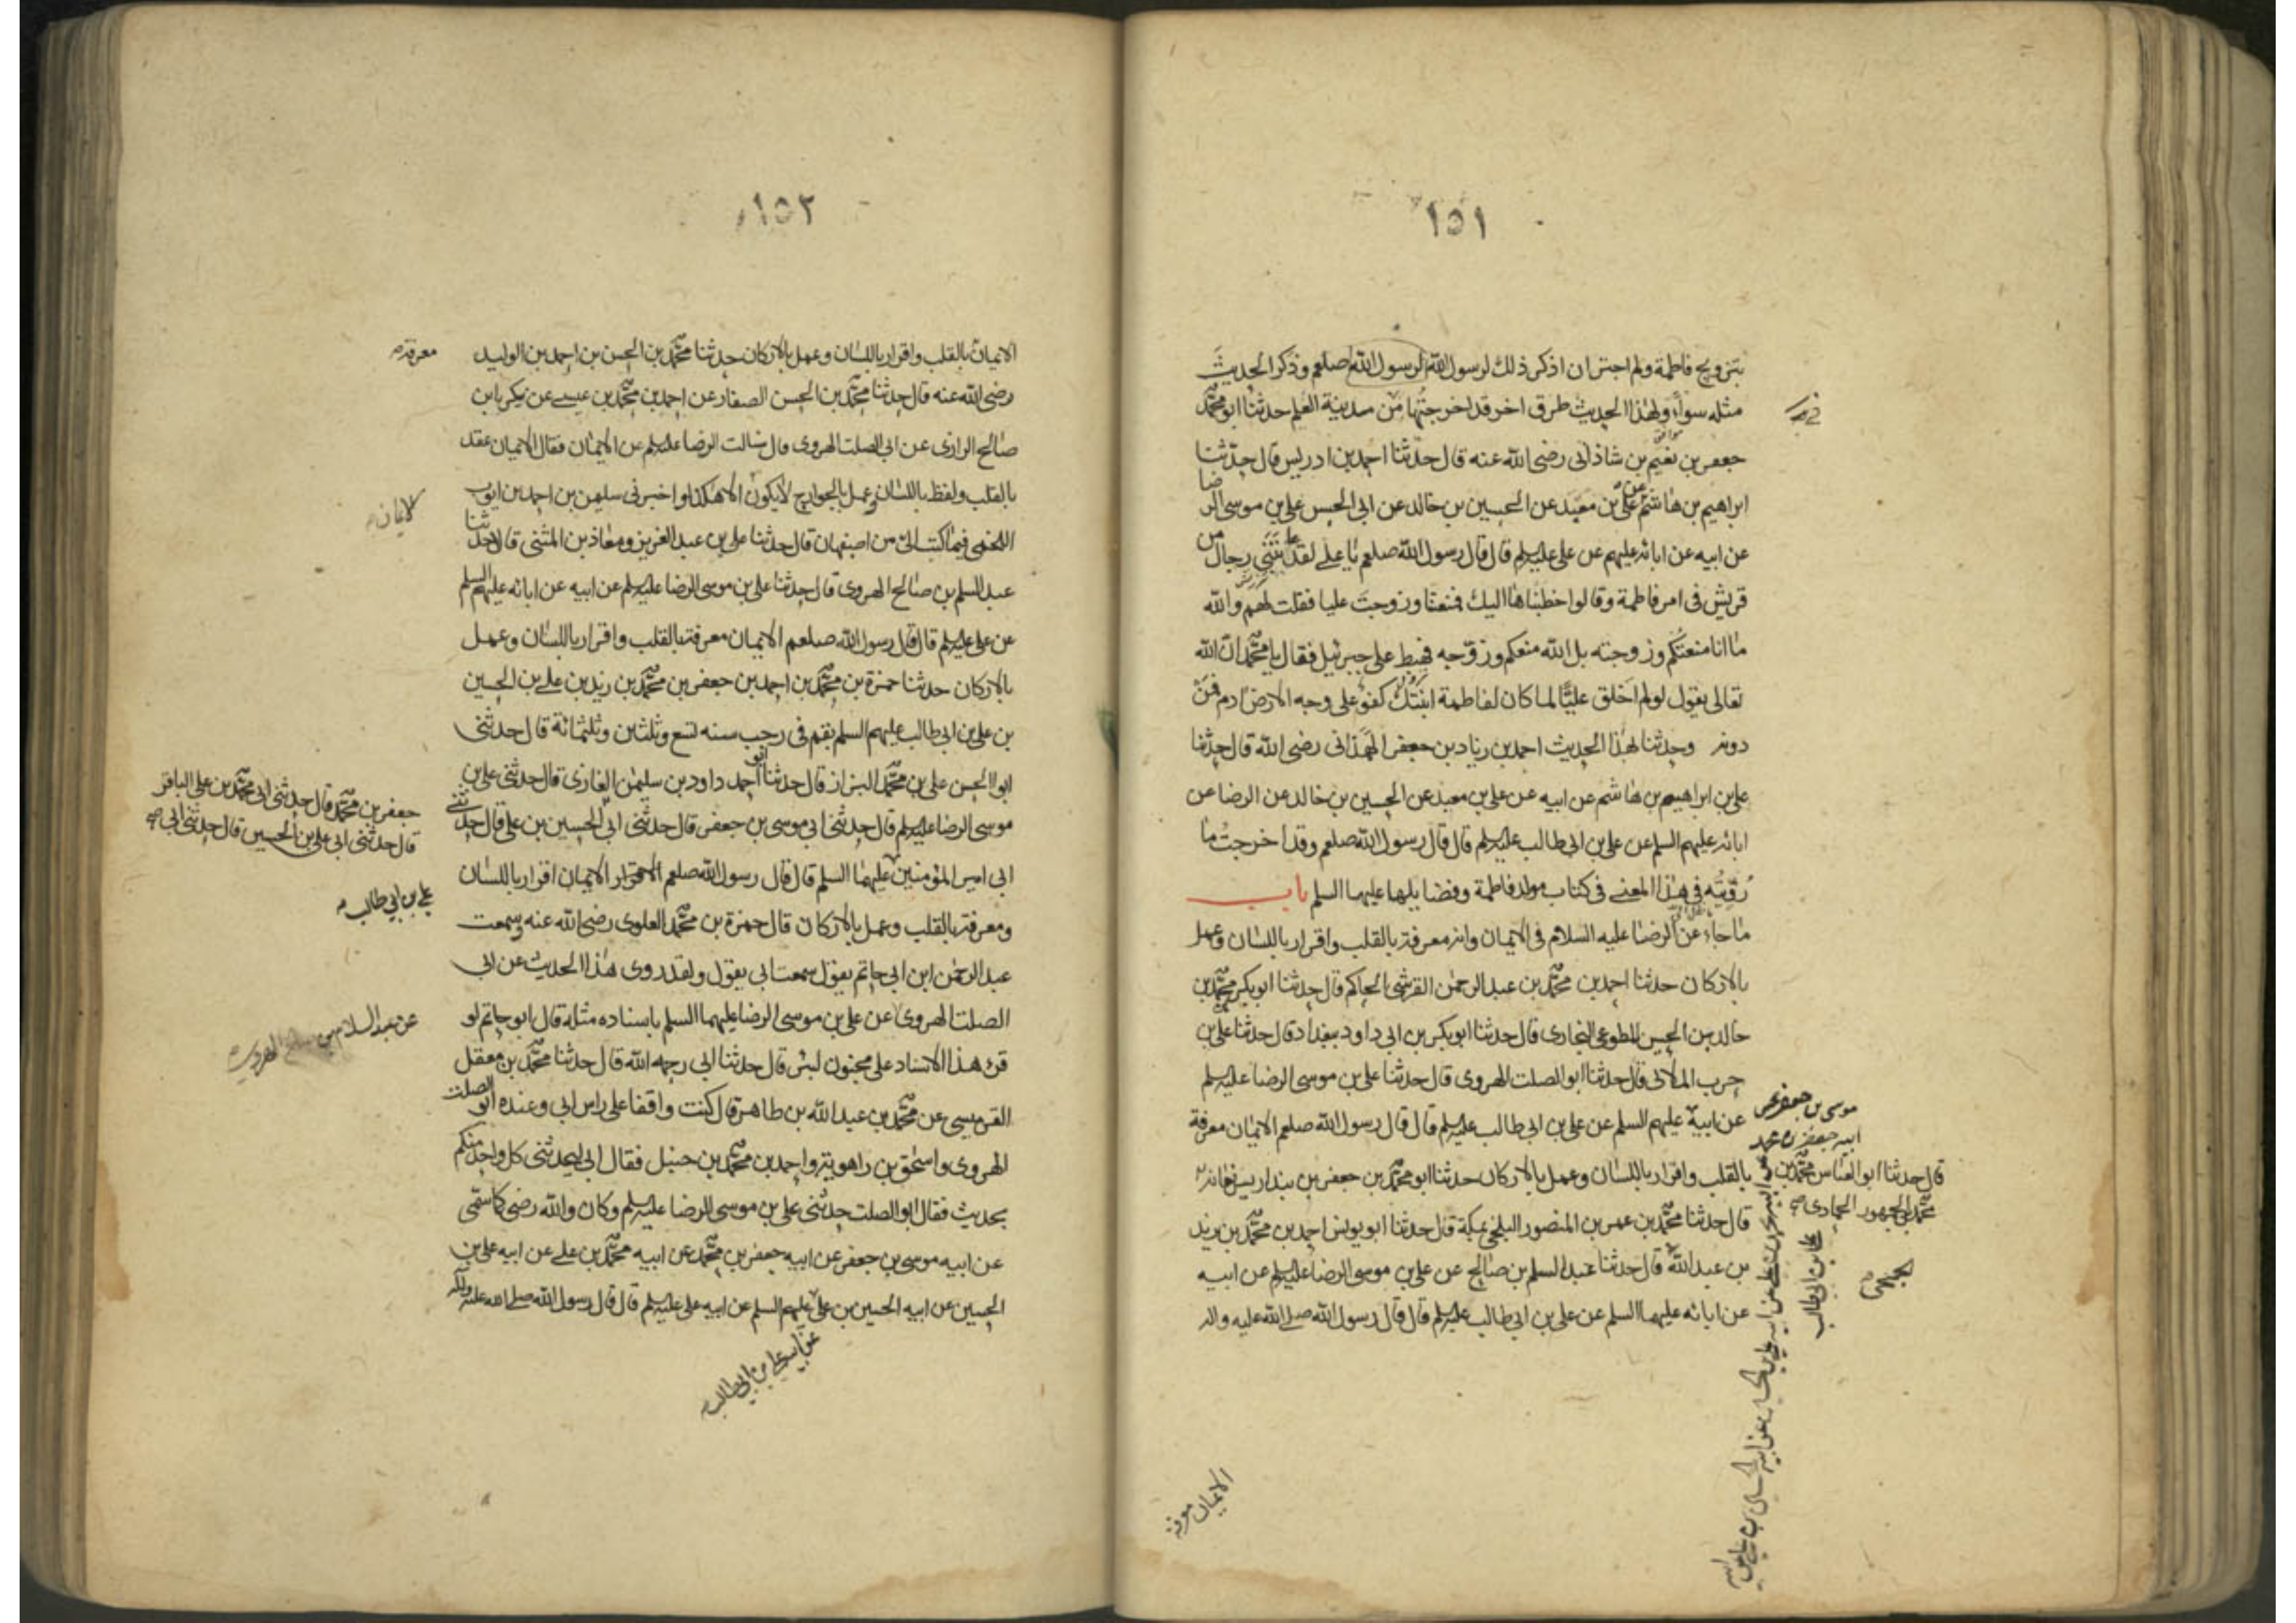 ١٥١
بتزويج فاطمة ولم اجتر ان اذكر ذلك لرسول الله لرسول الله صلعم وذكر الحديث
مثله سواء ولهذا الحديث طرق اخر قد اخرجتها من مدينة العلم حدثنا ابو محمد
جعفر بن نعيم بن شاذانى رضى الله عنه قال حدثنا احمد بن ادريس قال حدثنا
ابراهيم بن هاشم عن على بن معبد عن الحسين بن خالد عن ابى الحسن على بن موسى الرضا
عن ابيه عن ابائه عليهم عن على عليه السلم قال قال رسول الله صلعم يا على لقد عاتبتنى رجال من
قريش فى امر فاطمة وقالوا خطبناها اليك فمنعتنا وزوجت عليا فقلت لهم والله
ما انا منعتكم وزوجته بل الله منعكم وزوجه فهبط على جبرئيل فقال يا محمد ان الله
تعالى يقول لو لم اخلق عليا لما كان لفاطمة ابنتك كفو على وجه الارض ادم فمن
دونه وحدثنا بهذا الحديث احمد بن زياد بن جعفر الهمذانى رضى الله قال حدثنا
على بن ابراهيم بن هاشم عن ابيه عن على بن معبد عن الحسين بن خالد عن الرضا عن
ابائه عليهم السلم عن على بن ابى طالب عليه السلم قال قال رسول الله صلعم وقد اخرجت ما
رويته فى هذا المعنى فى كتاب مولد فاطمة وفضايلها عليهما السلم باب
ما جاء عن الرضا عليه السلام فى الايمان وانه معرفة بالقلب واقرار باللسان وعمل
بالاركان حدثنا احمد بن محمد بن عبد الرحمن القرشى الحاكم قال حدثنا ابو بكر محمد بن
خالد بن الحسن المطوعى البخارى قال حدثنا ابو بكر بن ابى داود ببغداد قال حدثنا على بن
حرب الملائى قال حدثنا ابو الصلت الهروى قال حدثنا على بن موسى الرضا عليه السلم
عن ابيه عليهم السلم عن على بن ابى طالب عليه السلم قال قال رسول الله صلعم الايمان معرفة
بالقلب واقرار باللسان وعمل بالاركان حدثنا ابو محمد بن جعفر بن بندار بفرغانه
قال حدثنا محمد بن عمر بن المنصور البلخى بمكة قال حدثنا ابو يونس احمد بن محمد بن يزيد
بن عبد الله قال حدثنا عبد السلم بن صالح عن على بن موسى الرضا عليه السلم عن ابيه
عن ابائه عليهما السلم عن على بن ابى طالب عليه السلم قال قال رسول الله صلى الله عليه واله
موسى بن جعفر عن
ابيه جعفر بن محمد
قال حدثنا ابو العباس محمد بن
محمد بن جمهور الحمادى
الجمحى
على بن ابى طالب
الايمان معرفة
١٥٢
الايمان بالقلب واقرار باللسان وعمل بالاركان حدثنا محمد بن الحسن بن احمد بن الوليد
رضى الله عنه قال حدثنا محمد بن الحسن الصفار عن احمد بن محمد بن عيسى عن بكر بن
صالح الرازى عن ابى الصلت الهروى قال سالت الرضا عليه السلم عن الايمان فقال الايمان عقد
بالقلب ولفظ باللسان وعمل بالجوارح لا يكون الا هكذا واخبرنى سليمن بن احمد بن ايوب
اللخمى فيما كتب الى من اصبهان قال حدثنا على بن عبد العزيز ومعاذ بن المثنى قال حدثنا
عبد السلم بن صالح الهروى قال حدثنا على بن موسى الرضا عليه السلم عن ابيه عن ابائه عليهم السلم
عن على عليه السلم قال قال رسول الله صلعم الايمان معرفة بالقلب واقرار باللسان وعمل
بالاركان حدثنا حمزة بن محمد بن احمد بن جعفر بن محمد بن زيد بن على بن الحسين
بن على بن ابى طالب عليهم السلم بقم فى رجب سنه تسع وثلثين وثلثمائة قال حدثنى
ابو الحسن على بن محمد البزاز قال حدثنا ابو احمد داود بن سليمن الغازى قال حدثنى على بن
موسى الرضا عليه السلم قال حدثنى ابى موسى بن جعفر قال حدثنى ابى الحسين بن على قال حدثنى
ابى امير المؤمنين عليهما السلم قال قال رسول الله صلعم الايمان اقرار باللسان
ومعرفة بالقلب وعمل بالاركان قال حمزة بن محمد العلوى رضى الله عنه وسمعت
عبد الرحمن ابن ابى حاتم يقول سمعت ابى يقول ولقد روى هذا الحديث عن ابى
الصلت الهروى عن على بن موسى الرضا عليهما السلم باسناده مثله قال ابو حاتم لو
قرئ هذا الاسناد على مجنون لبرئ قال حدثنا ابى رحمه الله قال حدثنا محمد بن معقل
القرميسى عن محمد بن عبد الله بن طاهر قال كنت واقفا على راس ابى وعنده ابو الصلت
الهروى واسحق بن راهويه واحمد بن محمد بن حنبل فقال ابى ليحدثنى كل واحد منكم
بحديث فقال ابو الصلت حدثنى على بن موسى الرضا عليه السلم وكان والله رضى كما سمى
عن ابيه موسى بن جعفر عن ابيه جعفر بن محمد عن ابيه محمد بن على عن ابيه على بن
الحسين عن ابيه الحسين بن على عليهم السلم عن ابيه على عليه السلم قال قال رسول الله صلى الله عليه واله
معرفة
الايمان
جعفر بن محمد قال حدثنى ابى محمد بن على الباقر
قال حدثنى ابى على بن الحسين قال حدثنى ابى
على بن ابى طالب
عن عبد السلام بن صالح الهروى
عن ابيه على بن ابى طالب